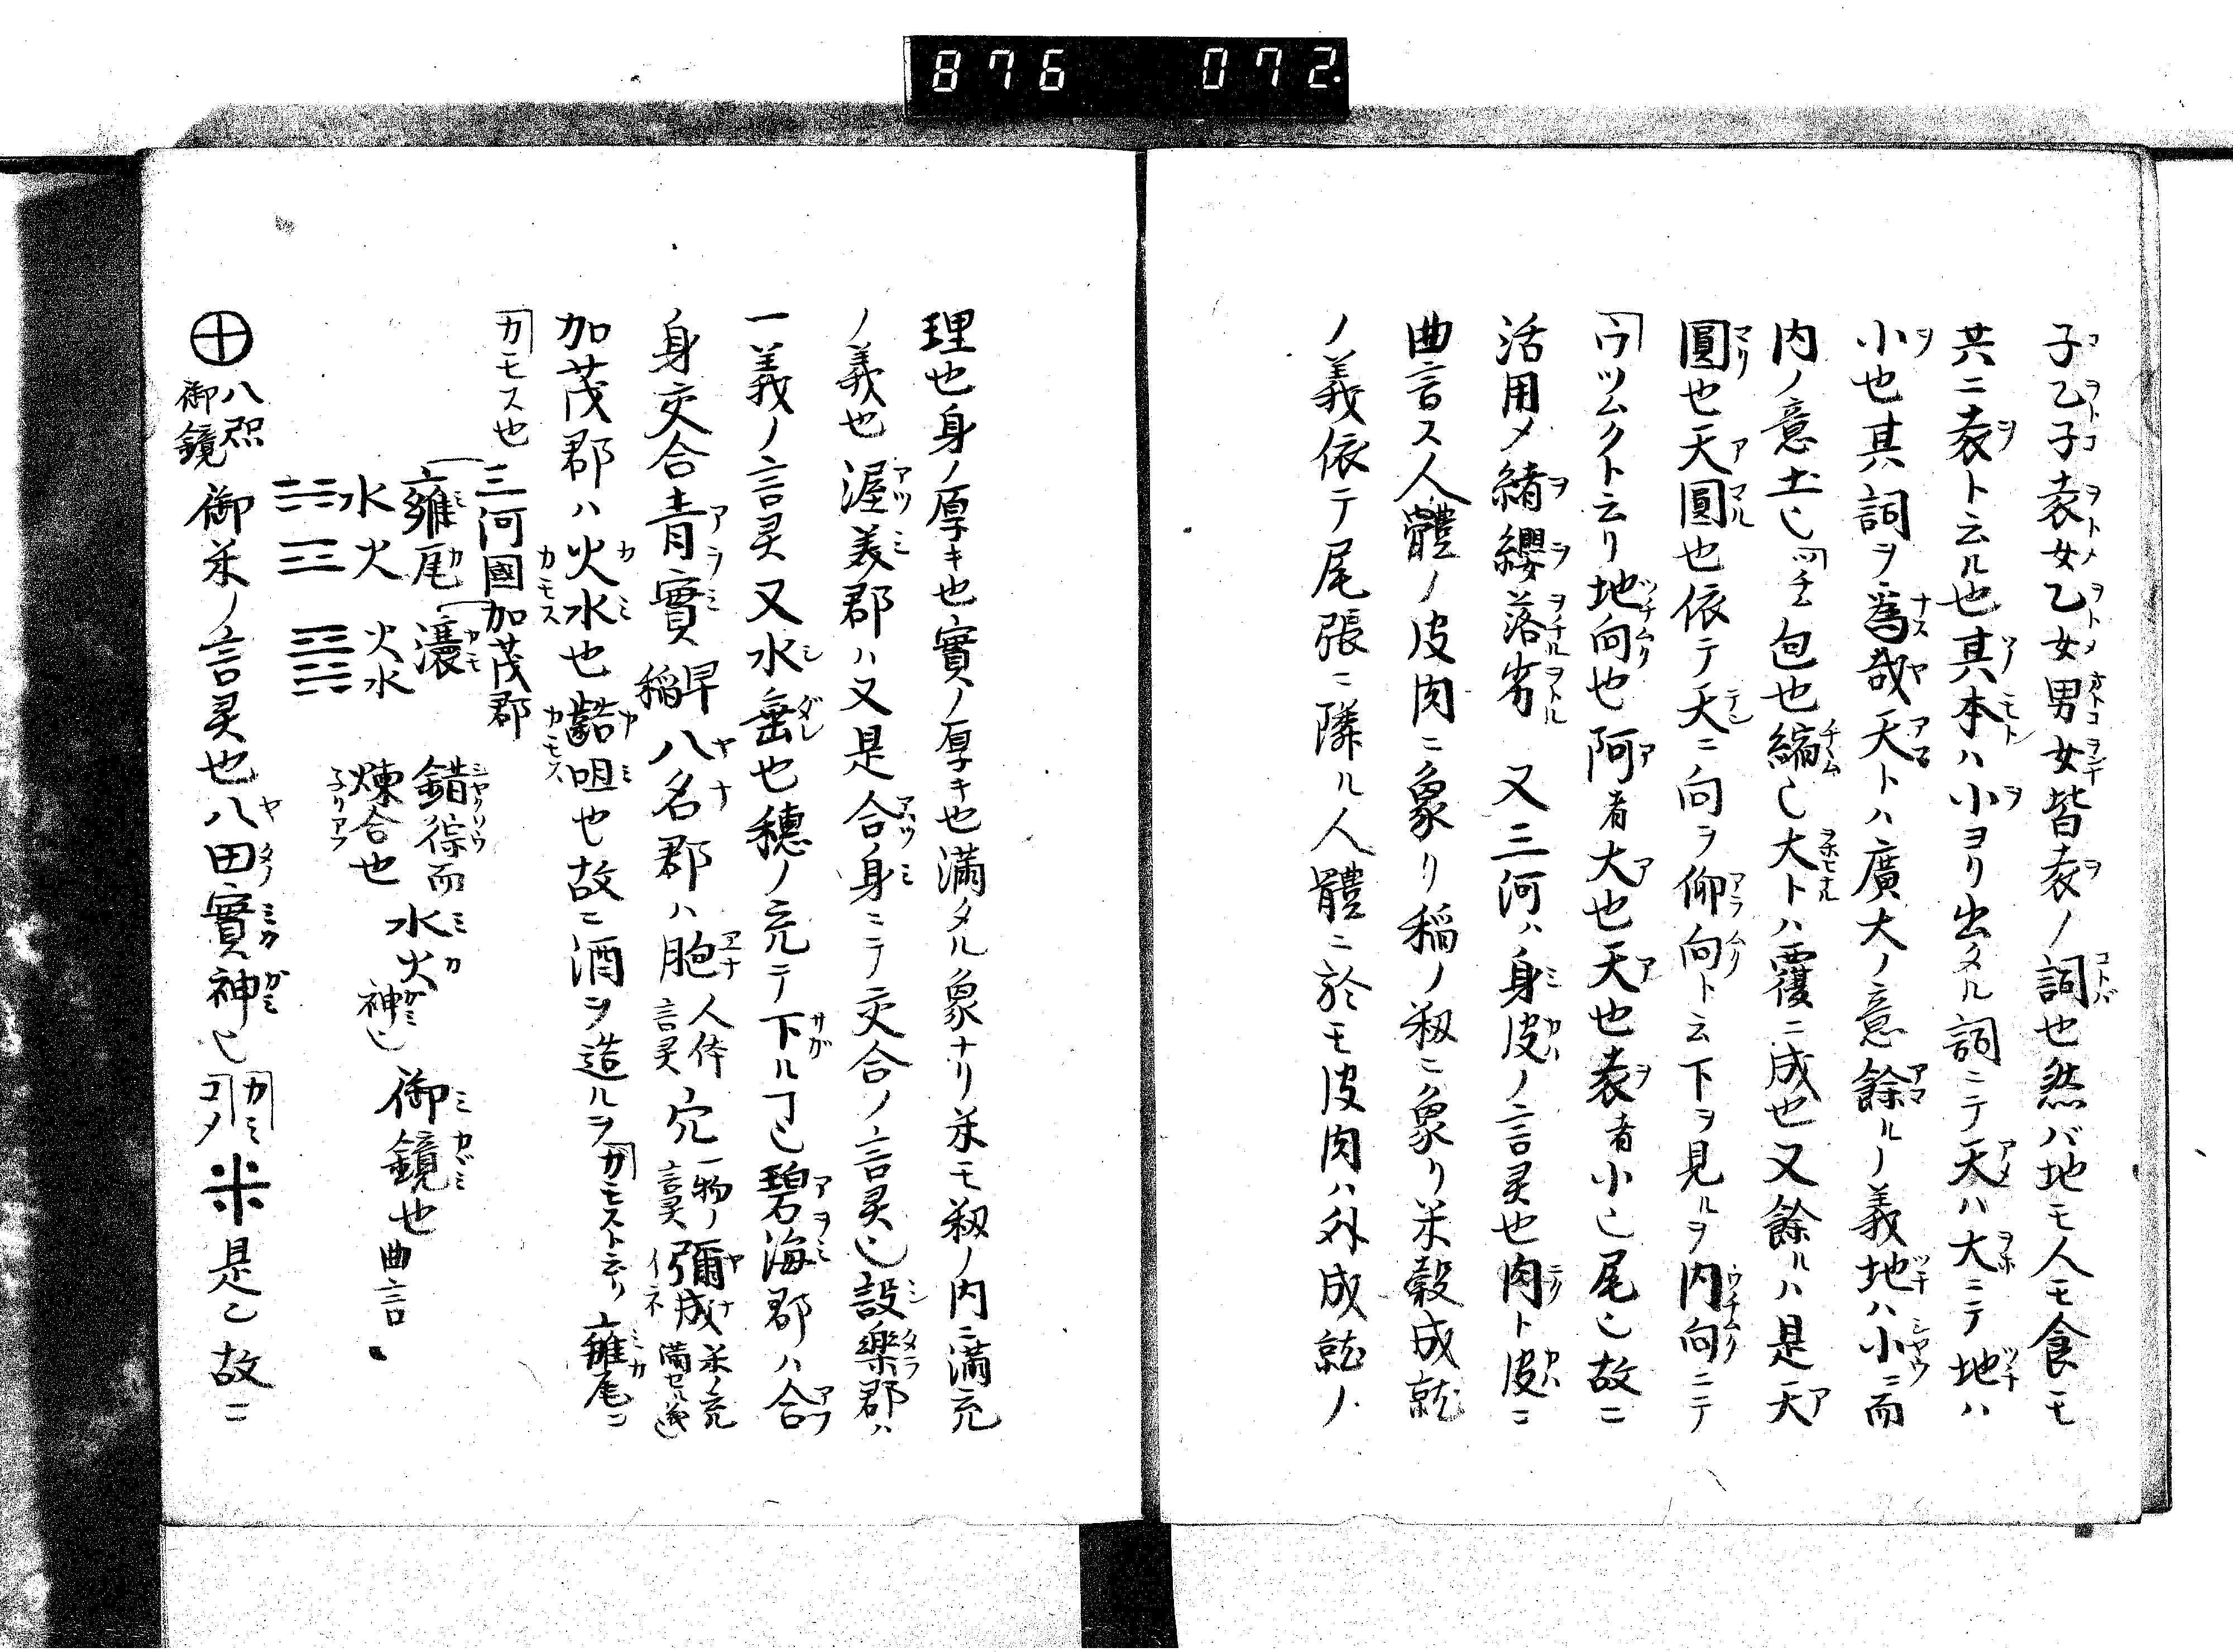 876 072.
子乙子表女乙女男女皆表ノ詞也然バ地モ人モ食モ
共ニ表ト云ル也其本ハ小ヨリ出タル詞ニテ天ハ大ニテ地ハ
小也其詞ヲ爲哉天トハ廣大ノ意餘ルノ義地ハ小ニ而
内ノ意土也ツチ包也縮也大トハ覆ニ成也又餘ルハ是天
圓也天圓也依テ天ニ向ヲ仰向ト云下ヲ見ルヲ内向ニテ
ウツムクト云リ地向也阿者大也天也表者小也尾也故ニ
活用メ緒纓落劣 又三河ハ身皮ノ言灵也肉ト皮ニ
曲言ス人體ノ皮肉ニ象リ稲ノ籾ニ象リ米穀成就
ノ義依テ尾張ニ隣ル人體ニ於モ皮肉ハ外成就ノ
理也身ノ厚キ也實ノ厚キ也満タル象ナリ米モ籾ノ内ニ満充
ノ義也渥美郡ハ又是合身ニテ交合ノ言灵也設樂郡ハ
一義ノ言灵又水垂也穂ノ充テ下ルヿ也碧海郡ハ合
身交合青實早稲八名郡ハ胞人体言灵穴一物ノ言灵彌成イネ米ノ充満セル義也
加茂郡ハ火水也齬咀也故ニ酒ヲ造ルヲカモスト云リ雍尾ニ
カモス也 三河國加茂郡
雍尾 瀼 錯綜而水火神也 御鏡也曲言
水火 火水 煉合也
八咫御鏡 御米ノ言灵也八田實神也カミコメ米是也故ニ